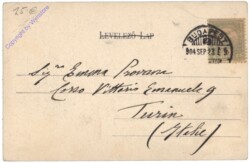 25.-€
Copyright
LEVELEZŐ LAP
BUDAPEST
904 SEP
Sig.ra Emma Provana
Corso Vittorio Emanuele 9
Turin
(Italie)